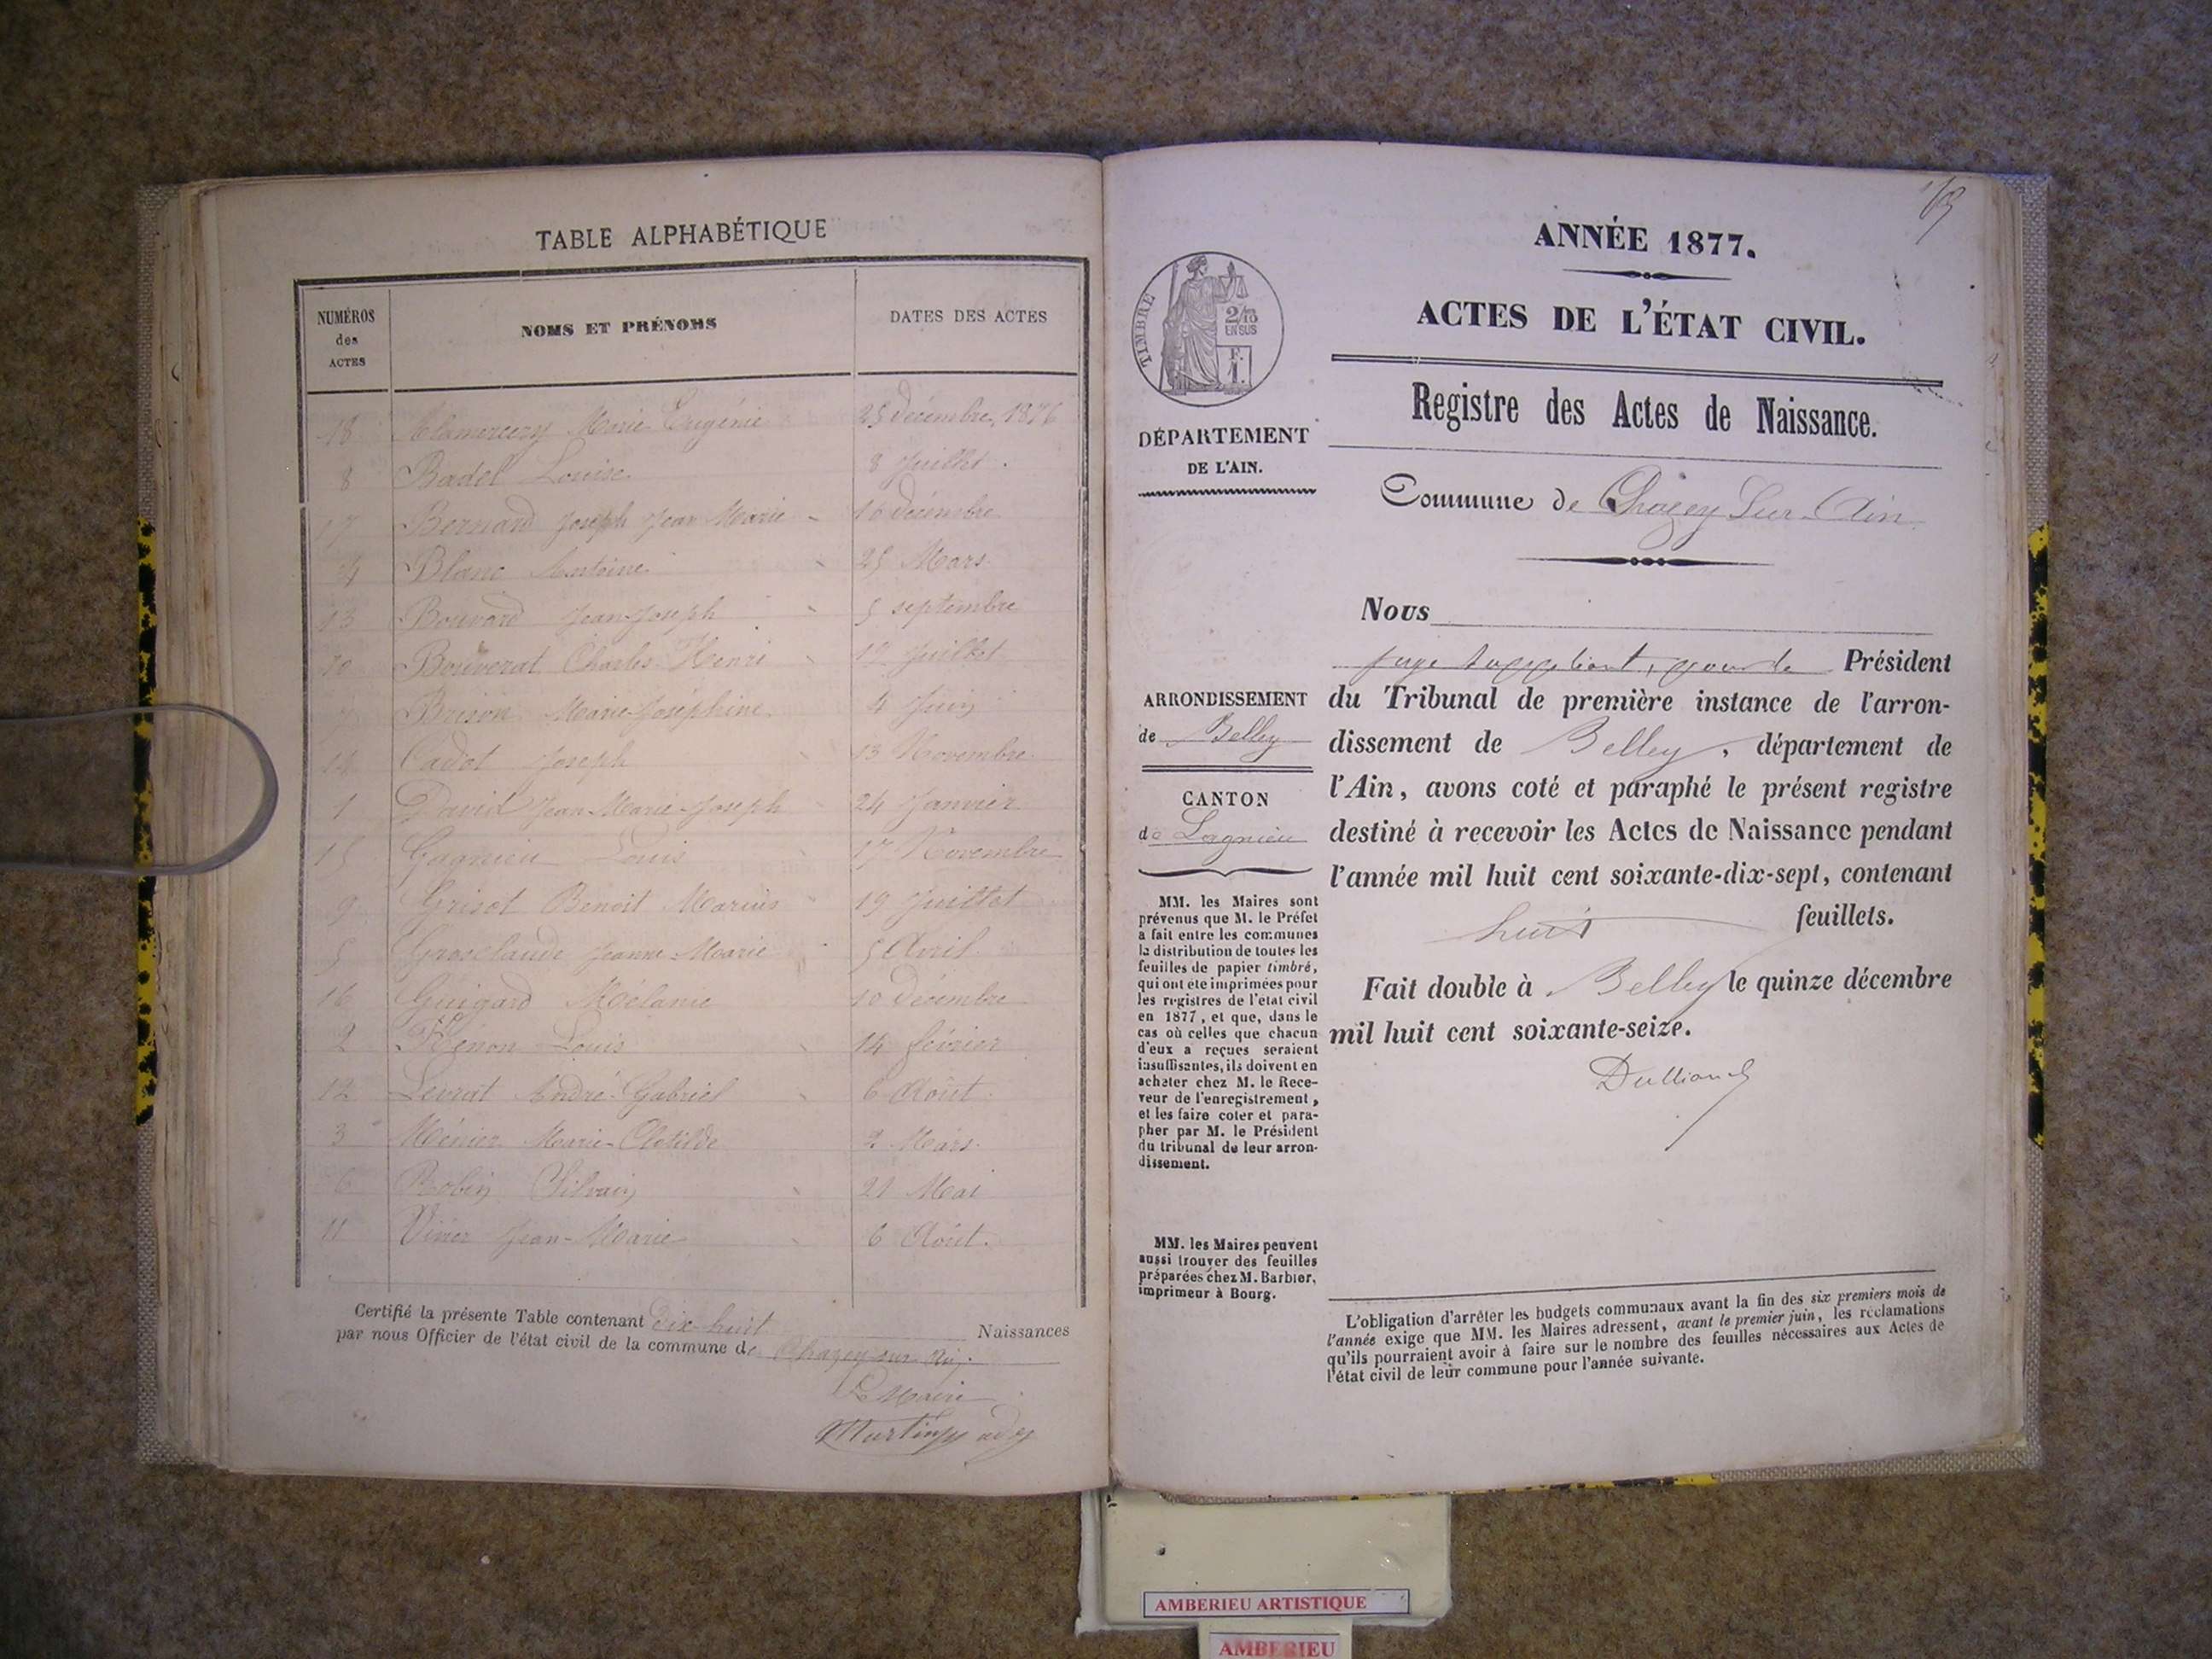 TABLE ALPHABÉTIQUE
NUMÉROS
des
ACTES
NOMS ET PRÉNOMS
DATES DES ACTES
18 Marie Eugénie 25 décembre 1876
8 Badel Louise 8 Juillet
17 Bernard Joseph Jean Marie 16 décembre
4 Blanc Antoine 25 Mars
13 Bouvard Jean Joseph 5 septembre
10 Bouverat Charles Henri 12 Juillet
7 Brison Marie Joséphine 4 Juin
14 Cadot Joseph 13 Novembre
1 David Jean-Marie-Joseph 24 Janvier
15 Gagnieu Louis 17 Novembre
9 Grisot Benoit Marius 19 Juillet
5 Grosclaude Jeanne-Marie 5 Avril
16 Guigard Mélanie 10 Décembre
2 Louis 14 février
12 Levrat André-Gabriel 6 Août
3 Ménier Marie-Clotilde 2 Mars
6 Robin Silvain 21 Mai
11 Jean-Marie 6 Août.
Certifié la présente Table contenant dix-huit Naissances
par nous Officier de l'état civil de la commune de Chazey-sur-Ain.
Le Maire
ANNÉE 1877.
ACTES DE L'ÉTAT CIVIL.
TIMBRE
2/10
EN SUS
F.
1.
Registre des Actes de Naissance.
DÉPARTEMENT
DE L'AIN.
Commune de Chazey Sur-Ain
Nous
juge suppléant, pour le Président
du Tribunal de première instance de l'arron-
dissement de Belley, département de
l'Ain, avons coté et paraphé le présent registre
destiné à recevoir les Actes de Naissance pendant
l'année mil huit cent soixante-dix-sept, contenant
huit feuillets.
Fait double à Belley le quinze décembre
mil huit cent soixante-seize.
ARRONDISSEMENT
de Belley
CANTON
de Lagnieu
MM. les Maires sont
prévenus que M. le Préfet
a fait entre les communes
la distribution de toutes les
feuilles de papier timbré,
qui ont été imprimées pour
les registres de l'état civil
en 1877, et que, dans le
cas où celles que chacun
d'eux a reçues seraient
insuffisantes, ils doivent en
acheter chez M. le Rece-
veur de l'enregistrement,
et les faire coter et para-
pher par M. le Président
du tribunal de leur arron-
dissement.
MM. les Maires peuvent
aussi trouver des feuilles
préparées chez M. Barbier,
imprimeur à Bourg.
L'obligation d'arrêter les budgets communaux avant la fin des six premiers mois de
l'année exige que MM. les Maires adressent, avant le premier juin, les réclamations
qu'ils pourraient avoir à faire sur le nombre des feuilles nécessaires aux Actes de
l'état civil de leur commune pour l'année suivante.
AMBERIEU ARTISTIQUE
AMBERIEU